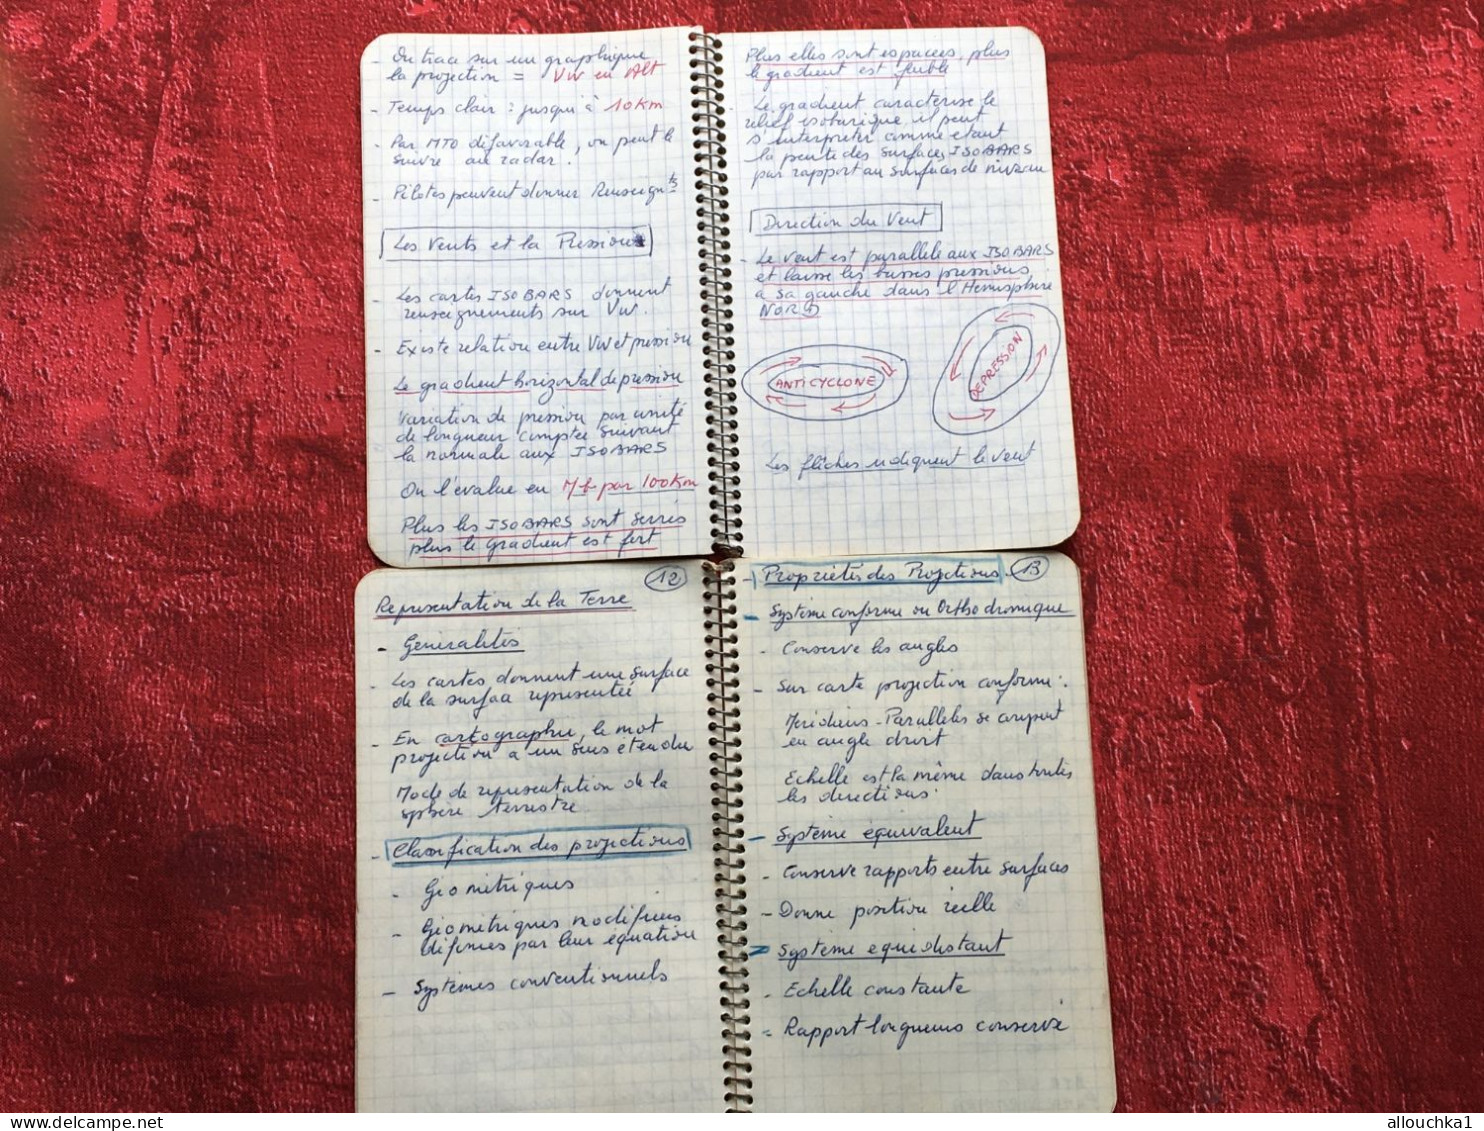 - On trace sur un graphique
la projection = VW en Alt
- Temps clair : jusqu'à 10 Km
- Par MTO défavorable, on peut le
suivre au radar.
- Pilotes peuvent donner Renseignts
Les Vents et la Pression
- Les cartes ISOBARS donnent
renseignements sur VW.
- Existe relation entre VW et pression
Le gradient horizontal de pression
Variation de pression par unité
de longueur comptée suivant
la normale aux ISOBARS
On l'évalue en Mb par 100 Km
Plus les ISOBARS sont serrés
plus le gradient est fort
Plus elles sont espacées, plus
le gradient est faible
- Le gradient caractérise le
relief isobarique, il peut
s'interpréter comme étant
la pente des surfaces ISOBARS
par rapport au surfaces de niveau
Direction du Vent
- Le vent est parallèle aux ISOBARS
et laisse les basses pressions
à sa gauche dans l'Hémisphère
NORD
ANTICYCLONE
DEPRESSION
Les flèches indiquent le vent
12
Représentation de la Terre
- Généralités
- Les cartes donnent une surface
de la surface représentée
- En cartographie, le mot
projection a un sens étendu
Mode de représentation de la
sphère terrestre
- Classification des projections
- Géométriques
- Géométriques modifiées
définies par leur équation
- Systèmes conventionnels
- Propriétés des Projections 13
- Système conforme ou Orthodromique
- Conserve les angles
- Sur carte projection conforme :
Méridiens - Parallèles se coupent
en angle droit
Echelle est la même dans toutes
les directions.
- Système équivalent
- Conserve rapports entre surfaces
- Donne position réelle
- Système equidistant
- Echelle constante
- Rapport longueurs conservé
allouchka1